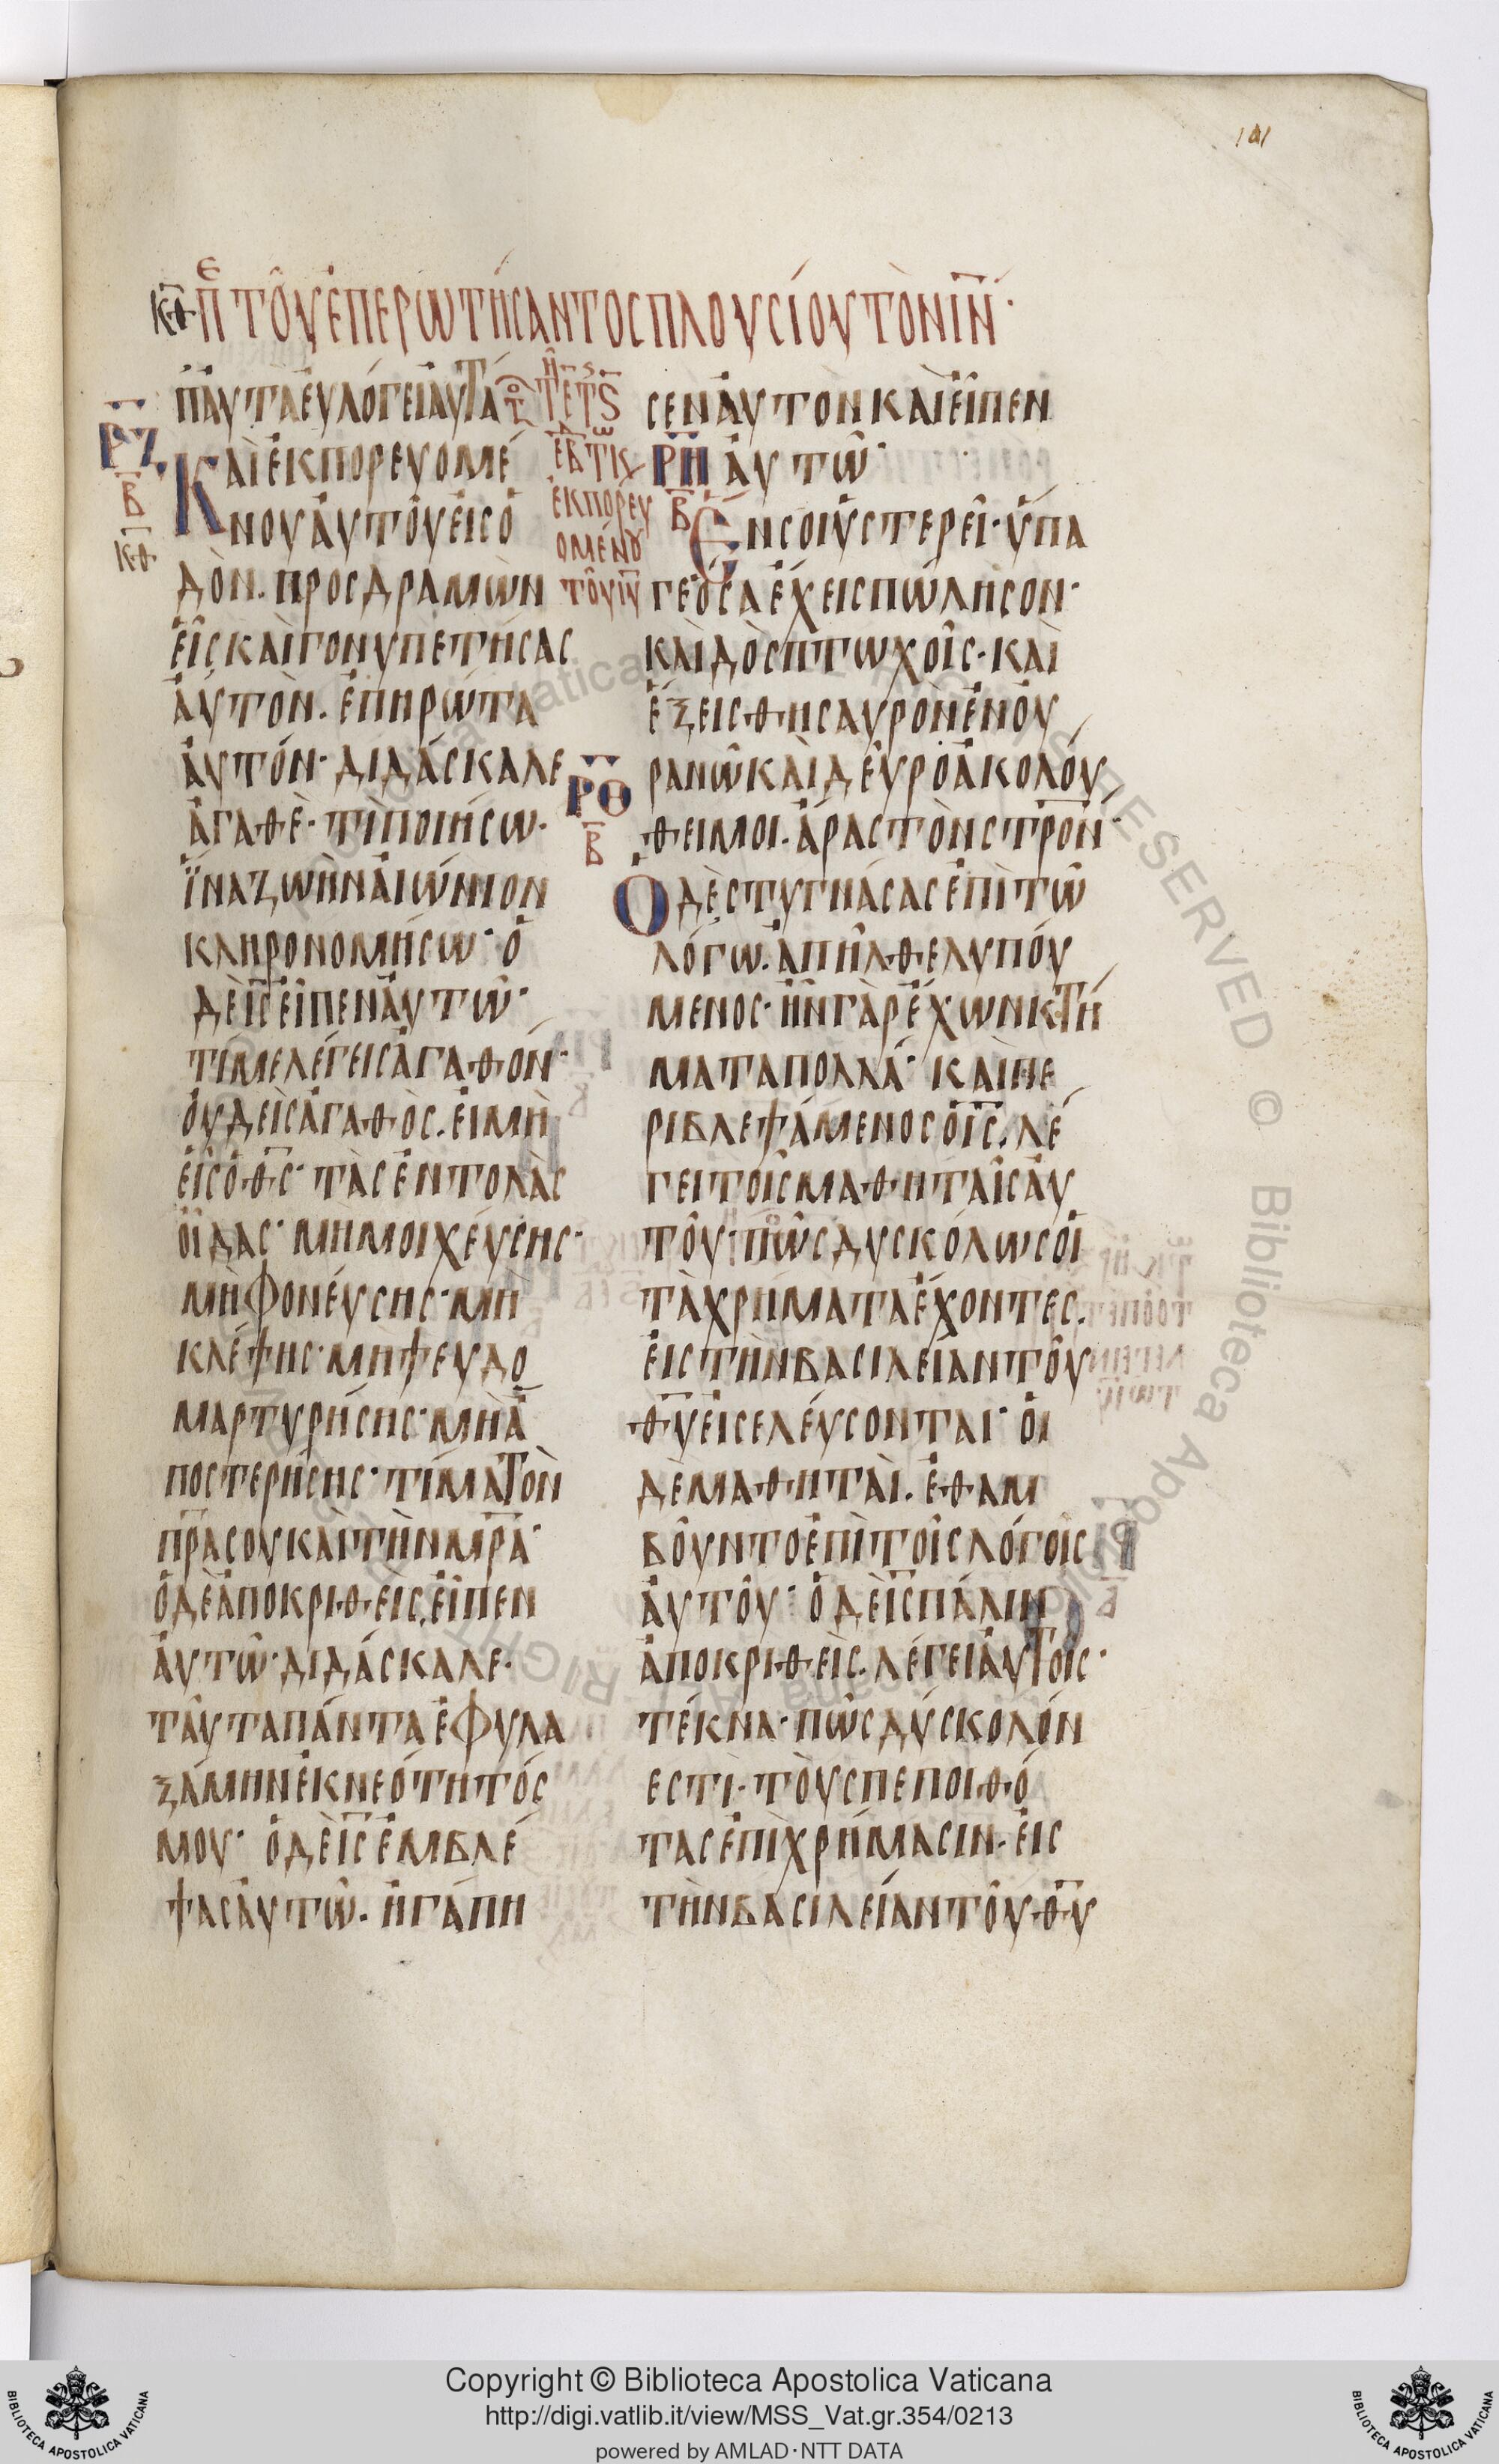 101
ΚΘ ΠΕ ΤΟΥ ΕΠΕΡΩΤΗΣΑΝΤΟΣ ΠΛΟΥΣΙΟΥ ΤΟΝ ΙΝ·
ἐπ' αὐτὰ εὐλόγει αὐτά
ΡΖ
Β
ΚΘ
Καὶ ἐκπορευομέ
νου αὐτοῦ εἰς ὁ
δὸν. προσδραμὼν
εἷς καὶ γονυπετήσας
αὐτὸν. ἐπηρώτα
αὐτόν· διδάσκαλε
ἀγαθὲ· τὶ ποιήσω·
ἵνα ζωὴν αἰώνιον
κληρονομήσω· ὁ
δὲ ΙΣ εἶπεν αὐτῶ·
τί με λέγεις ἀγαθόν·
οὐδεὶς ἀγαθὸς. εἰ μὴ
εἷς ὁ ΘΣ· τὰς ἐντολὰς
οἶδας· μὴ μοιχεύσης·
μὴ φονεύσης· μὴ
κλέψης· μὴ ψευδο
μαρτυρήσης· μὴ ἀ
ποστερήσης· τίμα τὸν
ΠΡΑ σου καὶ τὴν ΜΡΑ·
ὁ δὲ ἀποκριθεὶς. εἶπεν
αὐτῶ· διδάσκαλε·
ταῦτα πάντα ἐφυλα
ξάμην ἐκ νεότητός
μου· ὁ δὲ ΙΣ ἐμβλέ
ψας αὐτῶ. ἠγάπη
ἐκπορευ
ομένου
τοῦ ΙΥ
σεν αὐτὸν καὶ εἶπεν
ΡΗ αὐτῶ·
Β
Ἕν σοι ὑστερεῖ· ὕπα
γε ὅσα ἔχεις πώλησον·
καὶ δὸς πτωχοῖς· καὶ
ἕξεις θησαυρὸν ἐν οὐ
ρανῶ καὶ δεῦρο ἀκολού
θει μοι. ἄρας τὸν ΣΤΡΟΝ·
ΡΘ
Β
Ὁ δὲ στυγνάσας ἐπὶ τῶ
λόγω. ἀπῆλθε λυπού
μενος· ἦν γὰρ ἔχων κτή
ματα πολλά· καὶ πε
ριβλεψάμενος ὁ ΙΣ. λέ
γει τοῖς μαθηταῖς αὐ
τοῦ· πῶς δυσκόλως οἱ
τὰ χρήματα ἔχοντες.
εἰς τὴν βασιλείαν τοῦ
ΘΥ εἰσελεύσονται· οἱ
δὲ μαθηταὶ. ἐθαμ
βοῦντο ἐπὶ τοῖς λόγοις
αὐτοῦ· ὁ δὲ ΙΣ πάλιν
ἀποκριθεὶς. λέγει αὐτοῖς·
τέκνα· πῶς δύσκολόν
εστὶ· τοὺς πεποιθό
τας ἐπὶ χρήμασιν· εἰς
τὴν βασιλείαν τοῦ ΘΥ
Copyright © Biblioteca Apostolica Vaticana
http://digi.vatlib.it/view/MSS_Vat.gr.354/0213
powered by AMLAD·NTT DATA
BIBLIOTECA APOSTOLICA VATICANA
BIBLIOTECA APOSTOLICA VATICANA